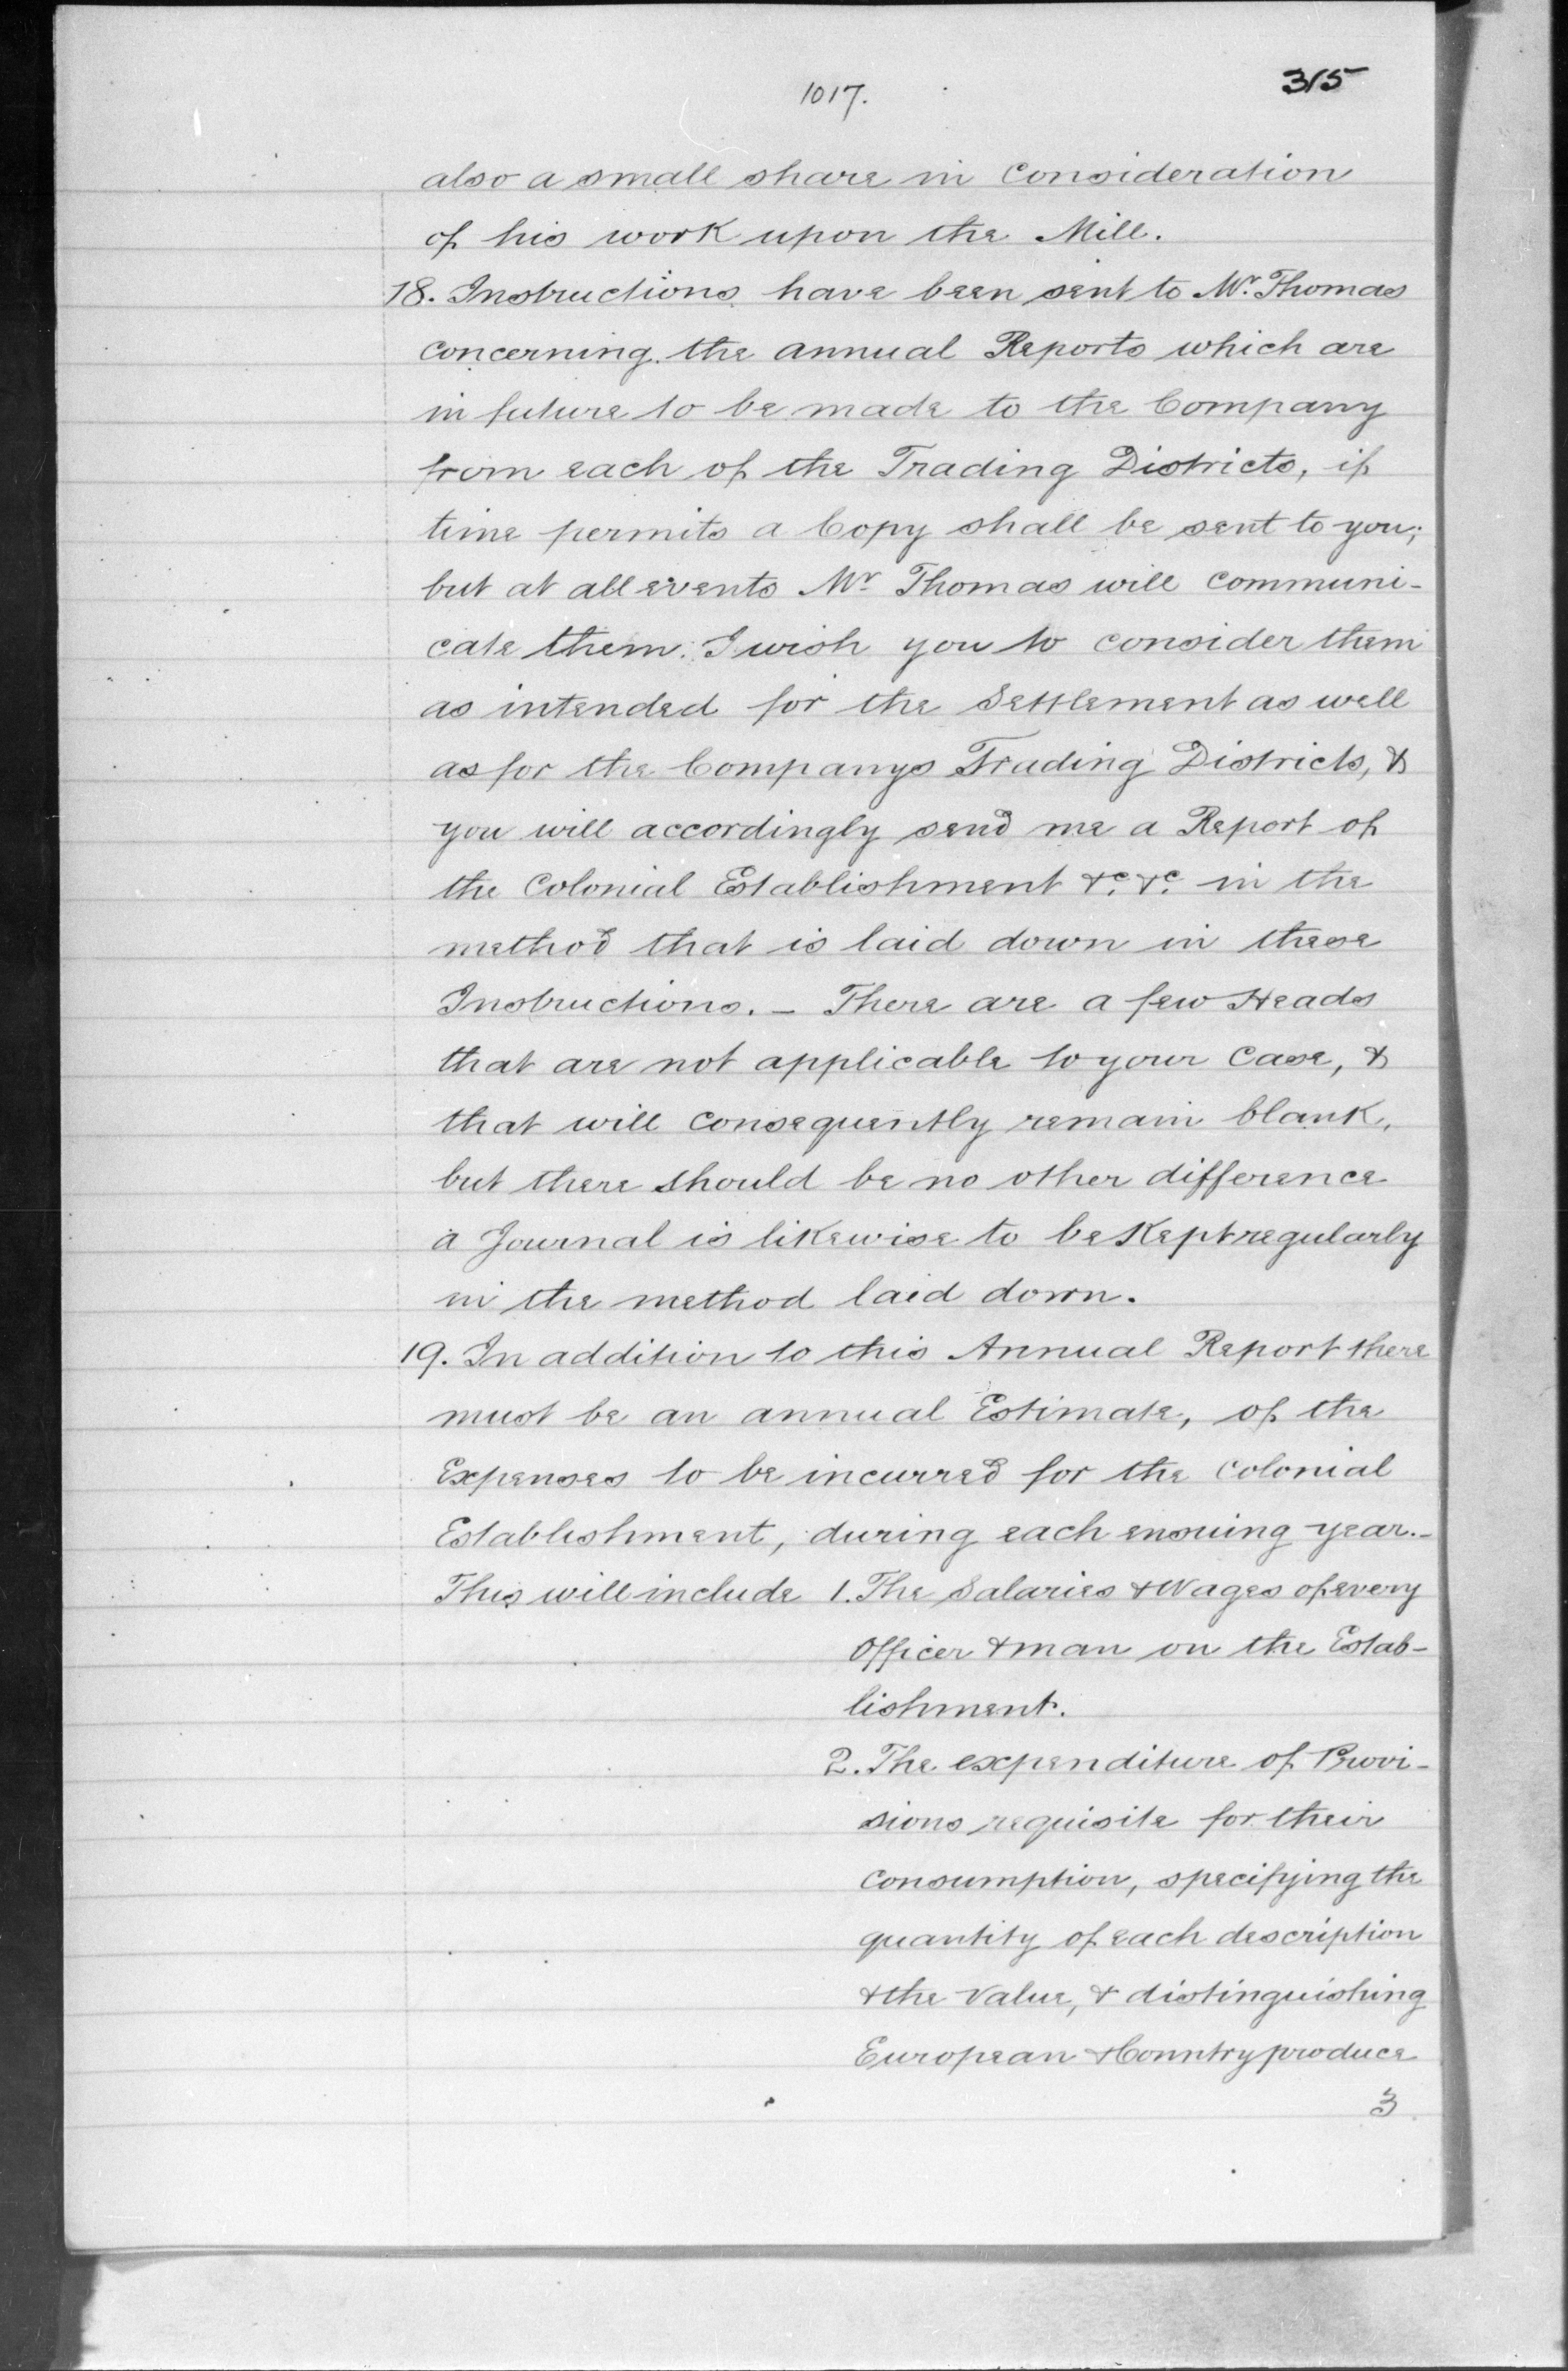 1017.
315
also a small share in Consideration
of his work upon the Mill.
18. Instructions have been sent to Mr. Thomas
concerning the annual Reports which are
in future to be made to the Company
from each of the Trading Districts, if
time permits a Copy shall be sent to you;
but at all events Mr. Thomas will communi-
cate them. I wish you to consider them
as intended for the Settlement as well
as for the Companys Trading Districts, &
you will accordingly send me a Report of
the Colonial Establishment &c. &c. in the
method that is laid down in these
Instructions. – There are a few Heads
that are not applicable to your Case, &
that will consequently remain blank,
but there should be no other difference
a Journal is likewise to be Kept regularly
in the method laid down.
19. In addition to this Annual Report there
must be an annual Estimate, of the
Expenses to be incurred for the Colonial
Establishment, during each ensuing year.–
This will include 1. The Salaries & Wages of every
Officer & man on the Estab-
lishment.
2. The expenditure of Provi-
sions requisite for their
Consumption, specifying the
quantity of each description
& the Value, & distinguishing
European & Country produce
3